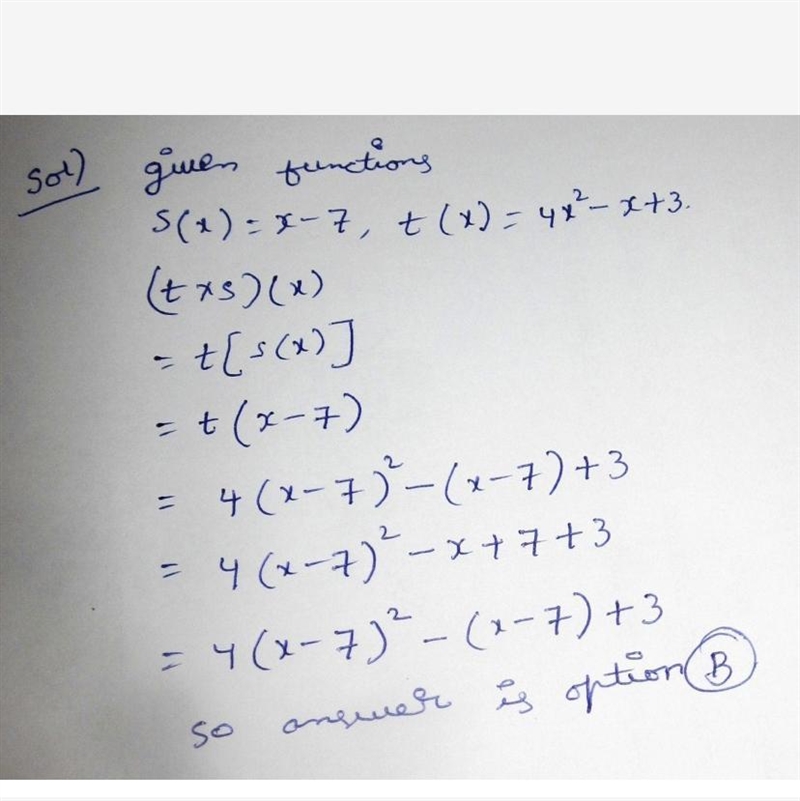 Sol) given functions
S(x) = x-7, t(x) = 4x²-x+3.
(t×s)(x)
= t[s(x)]
= t(x-7)
= 4(x-7)²-(x-7)+3
= 4(x-7)²-x+7+3
= 4(x-7)²-(x-7)+3
so answer is option B